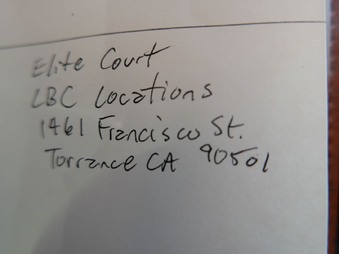 Elite Court
LBC Locations
1461 Francisco St.
Torrance CA 90501